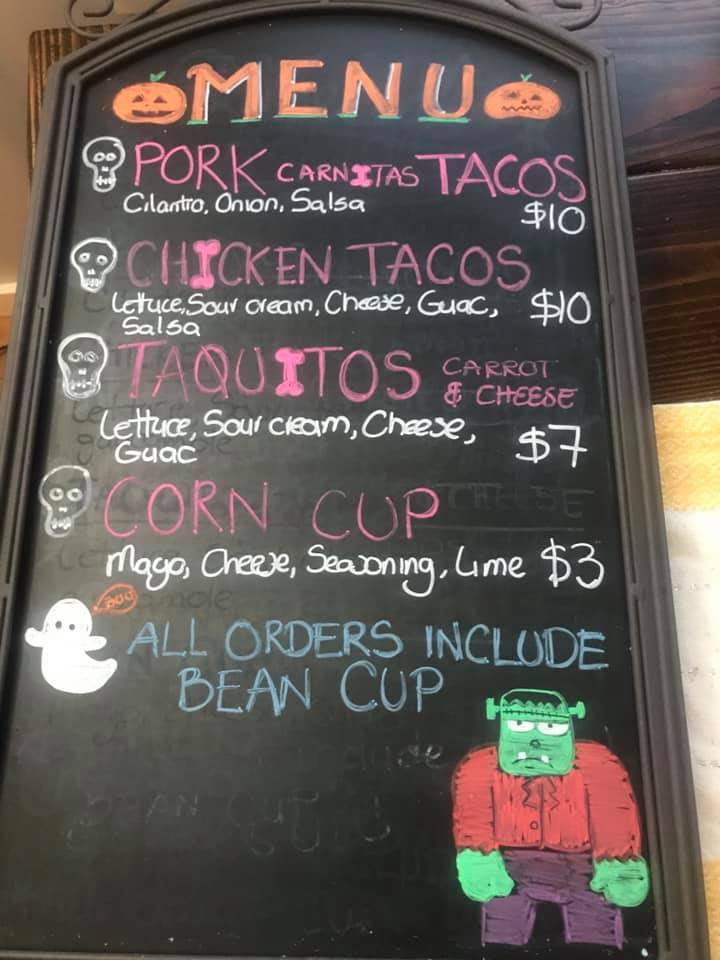 MENU
PORK CARNITAS TACOS
Cilantro, Onion, Salsa
$10
CHICKEN TACOS
Lettuce, Sour cream, Cheese, Guac, $10
Salsa
TAQUITOS CARROT
& CHEESE
Lettuce, Sour cream, Cheese, $7
Guac
CORN CUP
Mayo, Cheese, Seasoning, Lime $3
BOO
ALL ORDERS INCLUDE
BEAN CUP